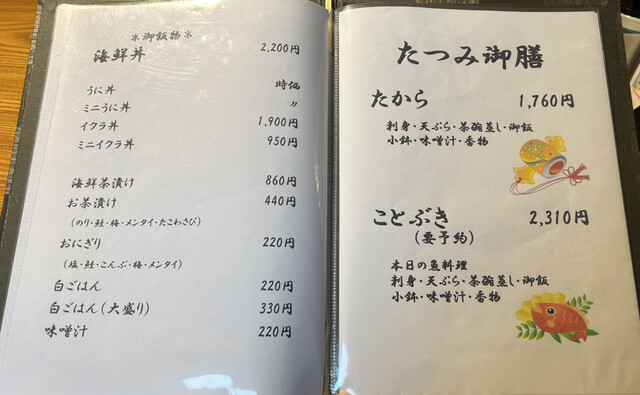 ＊御飯物＊
海鮮丼 2,200円
うに丼 時価
ミニうに丼 〃
イクラ丼 1,900円
ミニイクラ丼 950円
海鮮茶漬け 860円
お茶漬け 440円
(のり・鮭・梅・メンタイ・たこわさび)
おにぎり 220円
(塩・鮭・こんぶ・梅・メンタイ)
白ごはん 220円
白ごはん(大盛り) 330円
味噌汁 220円
たつみ御膳
たから 1,760円
刺身・天ぷら・茶碗蒸し・御飯
小鉢・味噌汁・香物
ことぶき 2,310円
(要予約)
本日の魚料理
刺身・天ぷら・茶碗蒸し・御飯
小鉢・味噌汁・香物